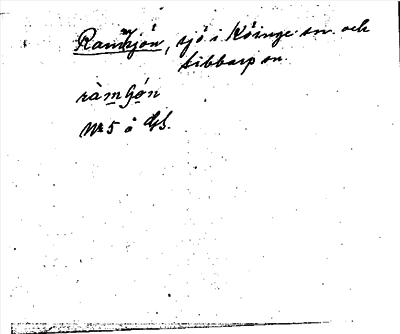 Ramsjön, sjö i Köinge sn. och
Sibbarp sn.
ràmʃǿn
Nr 5 å Gb.